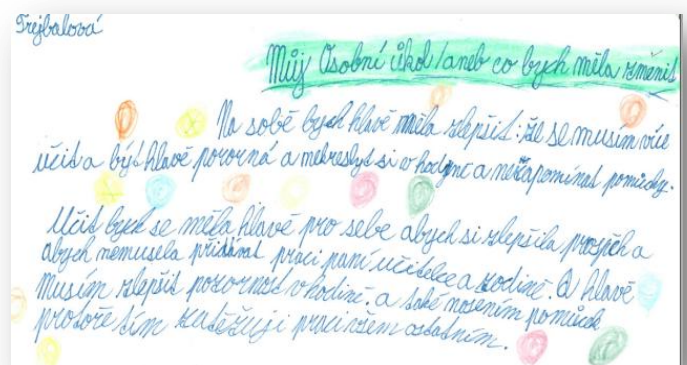 Trejbalová
Můj Osobní úkol/aneb co bych měla změnit
Na sobě bych hlavě měla zlepšit: že se musím více
učit a být hlavě pozorná a nekreslyt si v hodyně a nezapomínat pomůcky.
Učit bych se měla hlavě pro sebe abych si zlepšila prospěch a
abych nemusela přidávat práci paní učitelce a rodině. A hlavě
musím zlepšit pozornost v hodině. a také nosením pomůcek
protože tím zatěžuji práci všem ostatním.